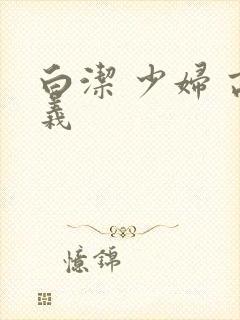 白潔 少婦
義
憶錦